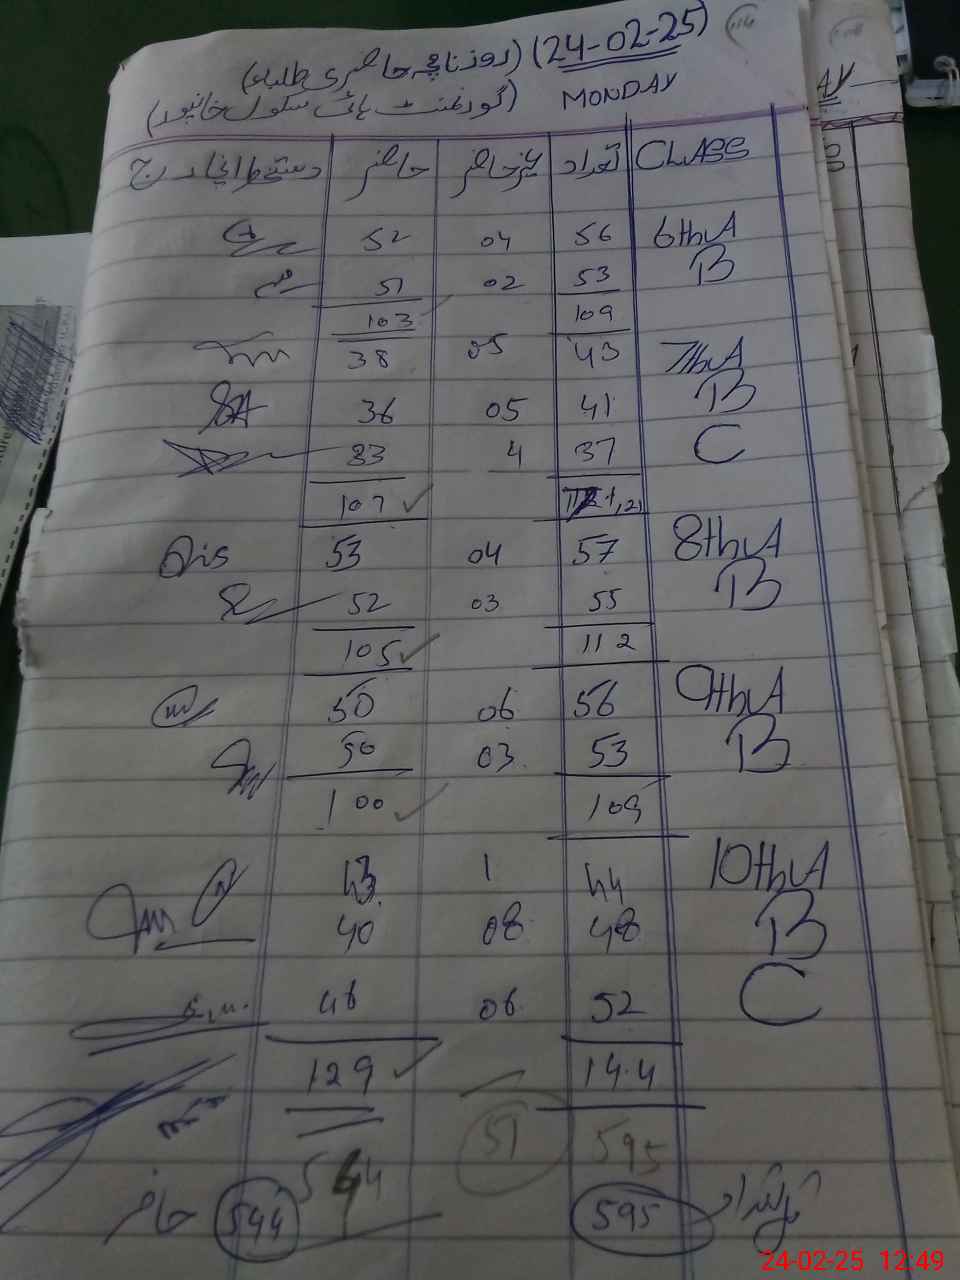 (24-02-25) (روزنامچہ حاضری طلباء)
MONDAY (گورنمنٹ ہائی سکول خانپور)
CLASS تعداد غیرحاضر حاضر دستخط انچارج
6thA 56 04 52
B 53 02 51
109 103
7thA 43 05 38
B 41 05 36
C 37 4 33
121 107
8thA 57 04 53
B 55 03 52
112 105
9thA 56 06 50
B 53 03 50
109 100
10thA 44 1 43
B 48 08 40
C 52 06 46
144 129
595 51 544
595 544 حاضر
24-02-25 12:49